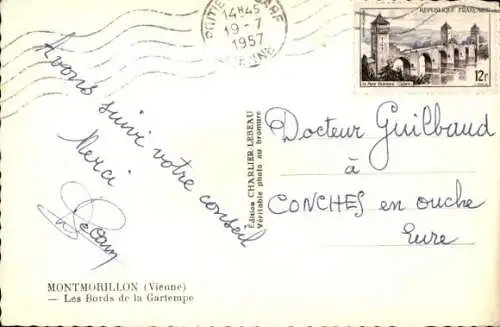 14H45
19-7
1957
VIENNE
REPUBLIQUE FRANÇAISE
12F
Avons suivi votre conseil
Merci
Edition CHARLIER-LEBEAU
Véritable photo au bromure
Docteur Guilbaud
à
CONCHES en ouche
Eure
MONTMORILLON (Vienne)
— Les Bords de la Gartempe